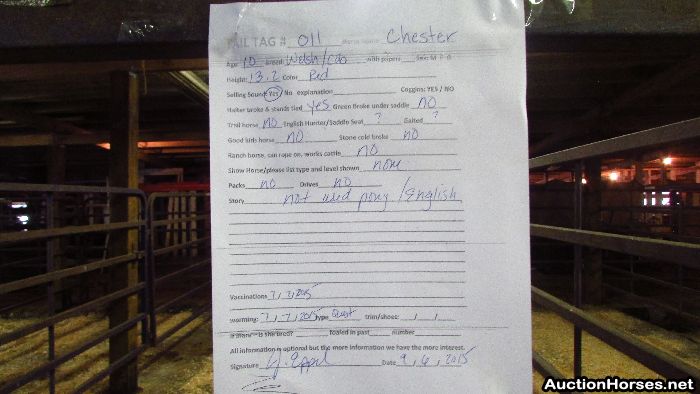 TAIL TAG # 011 Horse name Chester
Age 10 Breed: Welsh/Cob with papers Sex: M F G
Height: 13.2 Color Red
Selling Sound Yes/ No explanation Coggins: YES / NO
Halter broke & stands tied yes Green Broke under saddle no
Trail horse no English Hunter/Saddle Seat ? Gaited ?
Good kids horse no Stone cold broke no
Ranch horse, can rope on, works cattle no
Show Horse/please list type and level shown none
Packs no Drives no
Story not used pony /English
Vaccinations 7, 7, 2015
worming: 7, 7, 2015 type Quest trim/shoes: / /
foaled in past number
All information is optional but the more information we have the more interest.
Signature Date 9, 6, 2015
AuctionHorses.net